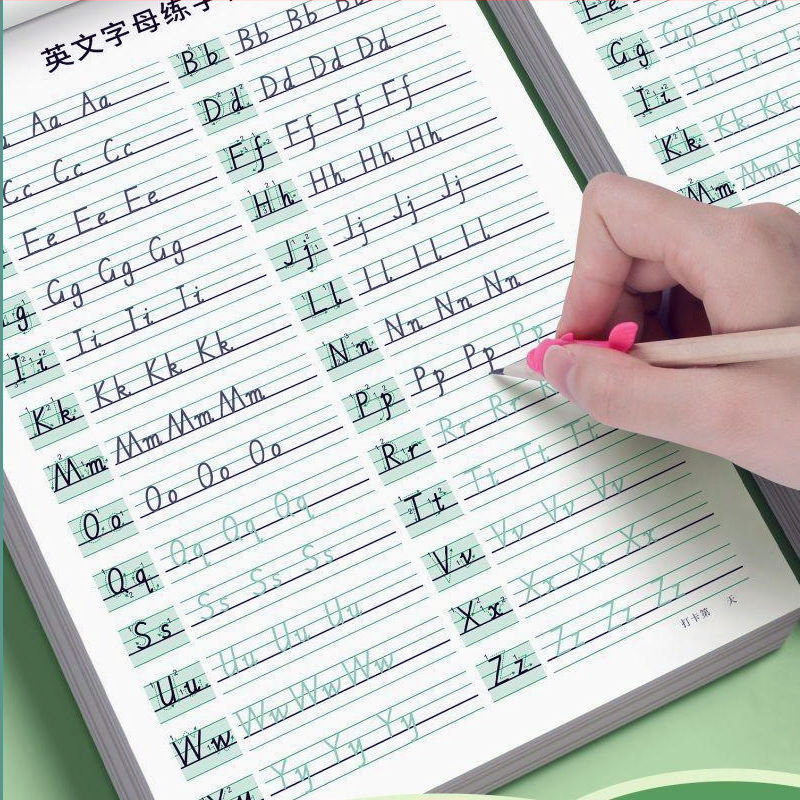 英文字母练
Aa Aa
Cc Cc Cc
Ee Ee Ee
Gg Gg Gg
Ii Ii Ii Ii
Kk Kk Kk Kk
Mm Mm Mm Mm
Oo Oo Oo Oo
Qq Qq Qq Qq
Ss Ss Ss Ss
Uu Uu Uu Uu
Ww Ww Ww Ww
Yy Yy Yy Yy
Bb Bb Bb Bb
Dd Dd Dd Dd
Ff Ff Ff Ff
Hh Hh Hh Hh
Jj Jj Jj Jj
Ll Ll Ll Ll
Nn Nn Nn Nn
Pp Pp Pp Pp
Rr Rr Rr
Tt Tt Tt Tt
Vv Vv Vv Vv
Xx Xx Xx Xx
Zz Zz Zz Zz
打卡第 天
Ee
Gg Gg Gg
Ii Ii Ii
Kk Kk Kk
Mm Mm